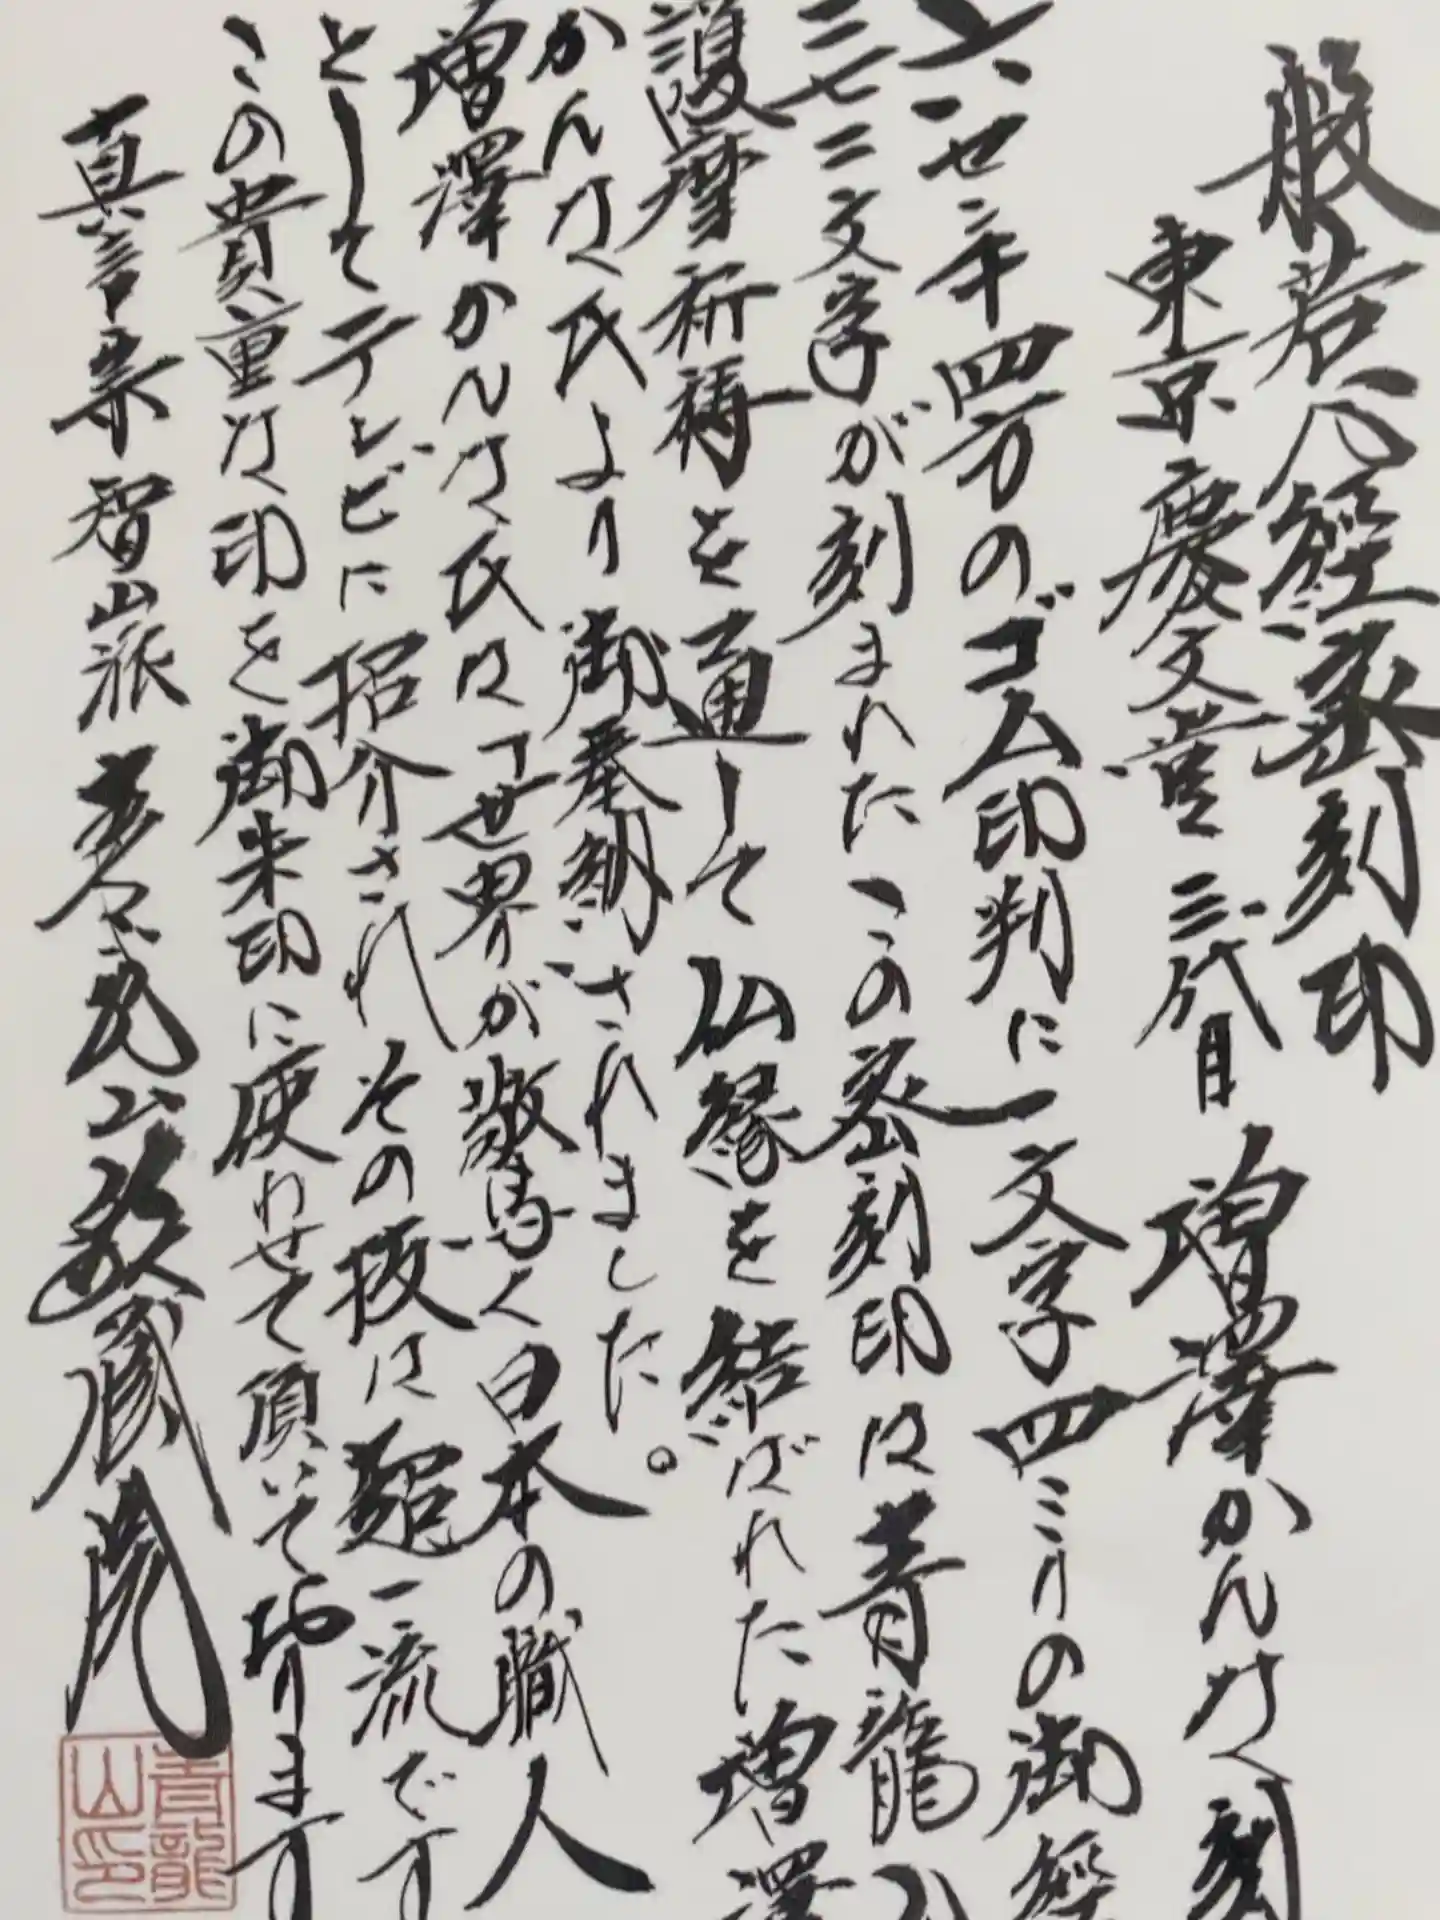 般若心経密刻印
東京 慶文堂 三代目 増澤かんな 刻
六・七糎四方のゴム印判に一文字四ミリの御経
二七二文字が刻まれたこの密刻印は青龍山
護摩祈祷を通して仏縁を結ばれた増澤
かんな氏より御奉納されました。
増澤かんな氏は「世界が驚く日本の職人
としてテレビに招介されその技は超一流です
この貴重な印を御朱印に使わせて頂いております
真言宗智山派 山 蔵院
青龍山印